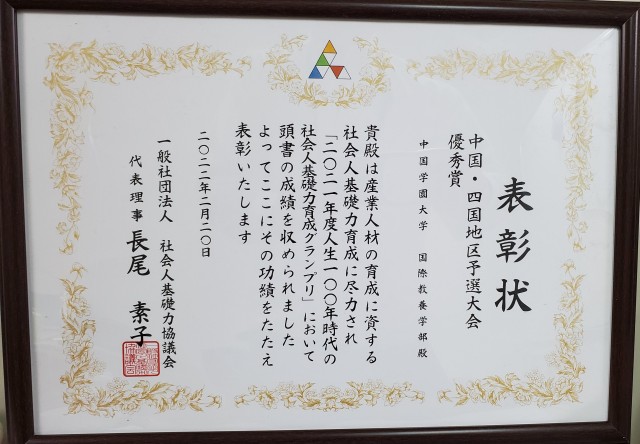 表彰状
中国・四国地区予選大会
優秀賞
中国学園大学 国際教養学部殿
貴殿は産業人材の育成に資する
社会人基礎力育成に尽力され
「二〇二一年度人生一〇〇年時代の
社会人基礎力育成グランプリ」において
頭書の成績を収められました
よってここにその功績をたたえ
表彰いたします
二〇二二年二月二〇日
一般社団法人 社会人基礎力協議会
代表理事 長尾 素子